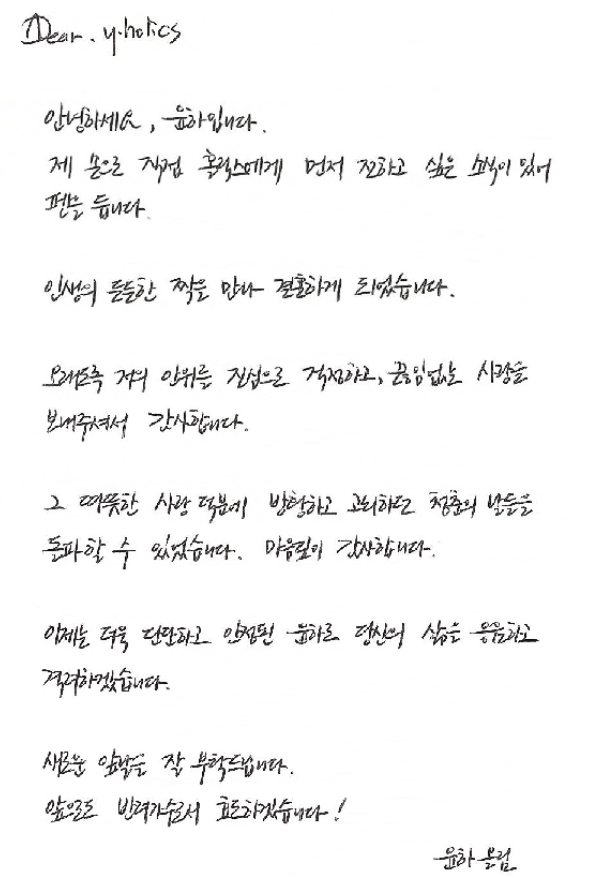 Dear. y.holics
안녕하세요, 윤하입니다.
제 손으로 직접 홀릭스에게 먼저 전하고 싶은 소식이 있어
펜을 듭니다.
인생의 든든한 짝을 만나 결혼하게 되었습니다.
오래도록 저의 안위를 진심으로 걱정하고, 끊임없는 사랑을
보내주셔서 감사합니다.
그 따뜻한 사랑 덕분에 방황하고 고뇌하던 청춘의 날들을
돌파할 수 있었습니다. 마음깊이 감사합니다.
이제는 더욱 단단하고 안정된 윤하로 당신의 삶을 응원하고
격려하겠습니다.
새로운 앞날을 잘 부탁드립니다.
앞으로도 반려가수로서 효도하겠습니다!
윤하 올림